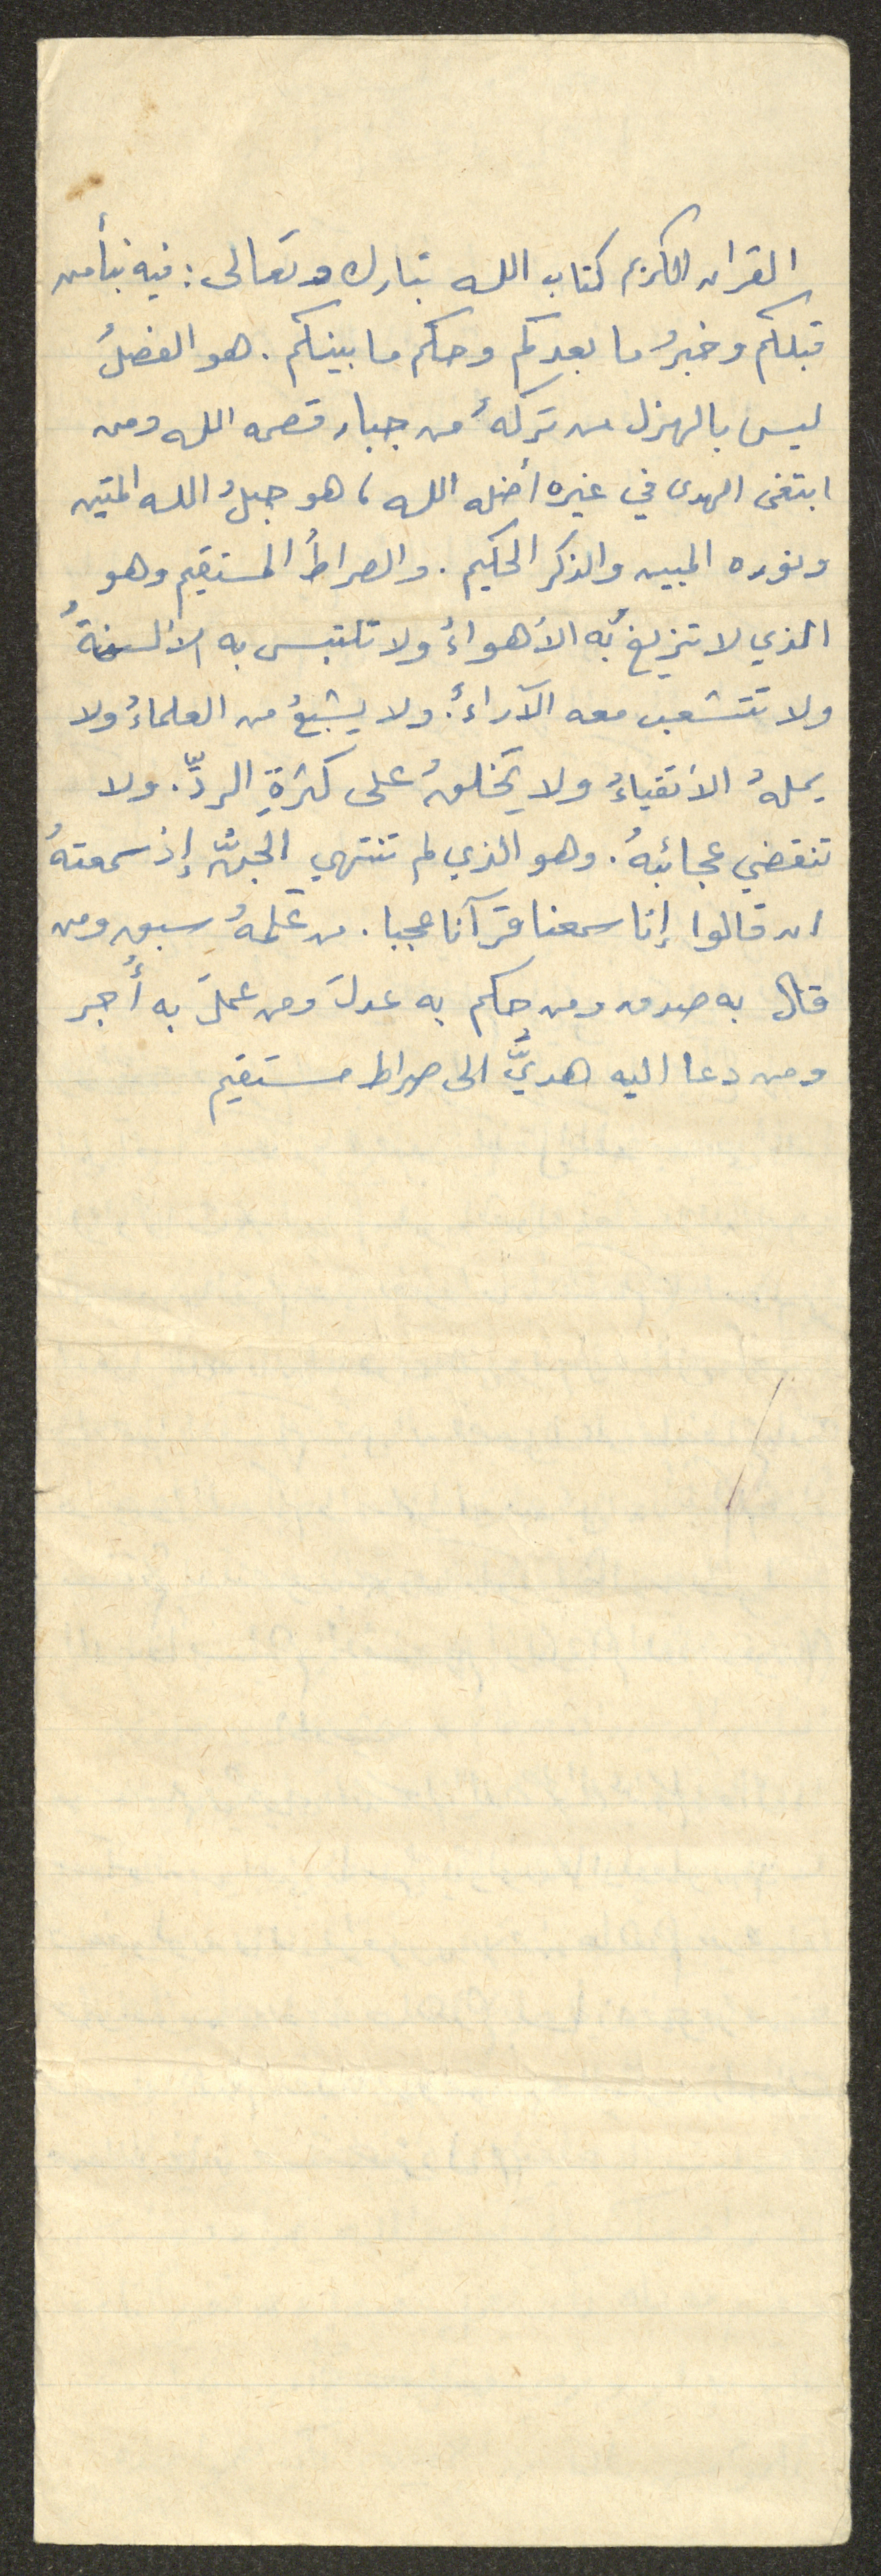 القران الكريم كتاب الله تبارك وتعالى : فيه نبأ من
قبلكم وخبرُ ما بعدكم وحكم ما بينكم . هو الفصلُ
ليس بالهزل من تركهُ من جبار قصمه الله ومن
ابتغى الهدى في غيره أضله الله ، هو حبلُ الله المتين
ونوره المبين والذكر الحكيم . والصراطُ المستقيم وهو
الذي لا تزيغُ به الأهواءُ ولا تلتبس به الألسنةُ
ولا تتشعب معه الآراءُ . ولا يشبعُ من العلماءُ ولا
يملهُ الأتقياءُ ولا يَخلقُ على كثرةِ الردِّ . ولا
تنقضي عجائبهُ . وهو الذي لم تنتهي الجنُّ إذ سمعتهُ
ان قالوا إنا سمعنا قرآنا عجبا . من عَلِمهُ سبق ومن
قال به صدق ومن حكم به عدلَ ومن عملَ به أُجر
ومن دعا اليه هديَّ الى صراط مستقيم